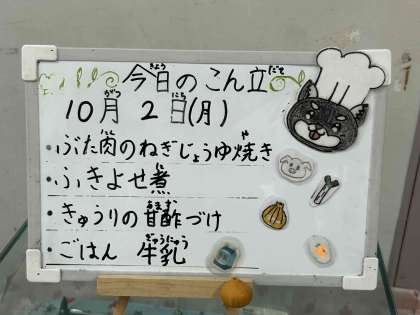 今日のこん立
10月 2日(月)
・ぶた肉のねぎじょうゆ焼き
・ふきよせ煮
・きゅうりの甘酢づけ
・ごはん 牛乳